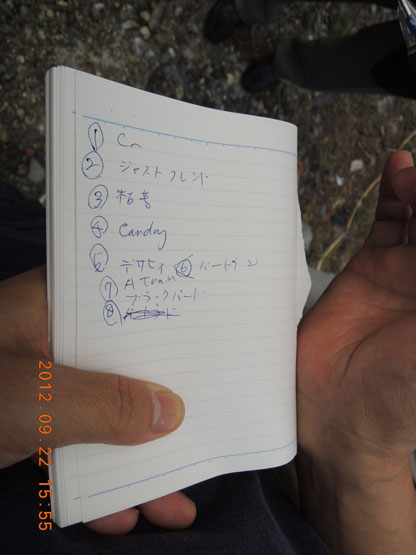 ① C
② ジャストフレンド
③ 枯葉
④ Canday
⑤ デサフィ ⑥ バードランド
⑦ A Train
ブラックバード
⑧
2012.09.22 15:55